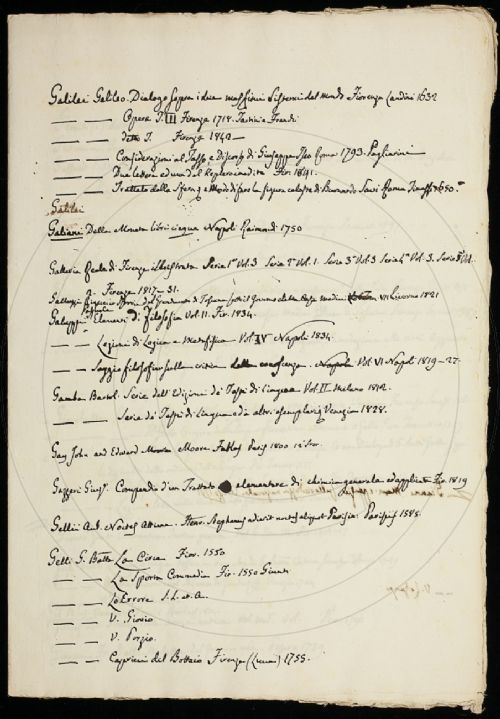 Galilei Galileo. Dialogo sopra i due massimi Sistemi del mondo Fiorenza Landini 1632
— — Opere T. III Firenze 1718. Tartini e Franchi
— — dette T. Firenze 1842 —
— — Considerazioni al Tasso e Discorso di Giuseppe Iseo Roma 1793. Pagliarini
— — Due lettere ed una del Keplero inedite Fir. 1841.
— — Trattato della Sfera, e Modo di fare la figura celeste di Bernardo Savi Roma 1650.
Galilei
Galiani Della Moneta libri cinque Napoli Raimondi 1750
Galleria Reale di Firenze illustrata Serie 1ª Vol. 3 Serie 2ª Vol. 1. Serie 3ª Vol. 3 Serie 4ª Vol. 3. Serie Vol.
Firenze 1817-31.
Galluzzi Storia del Granducato di Toscana sotto il Governo della Casa Medici VII Livorno 1821
Galuppi Pasquale Elementi di Filosofia Vol. II. Fir. 1834.
— — Lezioni di Logica e Metafisica Vol. IV Napoli 1834.
— — Saggio filosofico sulla critica della conoscenza. Napoli Vol. VI Napoli 1819-27.
Gamba Bartol. Serie dell'Edizioni de' Testi di Lingua Vol. II Milano 1812.
— — Serie de' Testi di Lingua e di altri esemplari Venezia 1828.
Gay John and Edward Moore Fables Paris 1800
Gazzeri Gius. Compendio d'un Trattato elementare di chimica generale ed applicata Fir. 1819
Gellii Aul. Noctes Atticae. Henr. Stephanus noctes aliquot Parisiis 1585.
Gelli G. Batta La Circe Fior. 1550
— — La Sporta Commedia Fir. 1550 Giunti
— — Lo Errore S. L. et A.
— — V. Giovio
— — V. Porzio.
— — Capricci del Bottaio Firenze (Lucca) 1755.